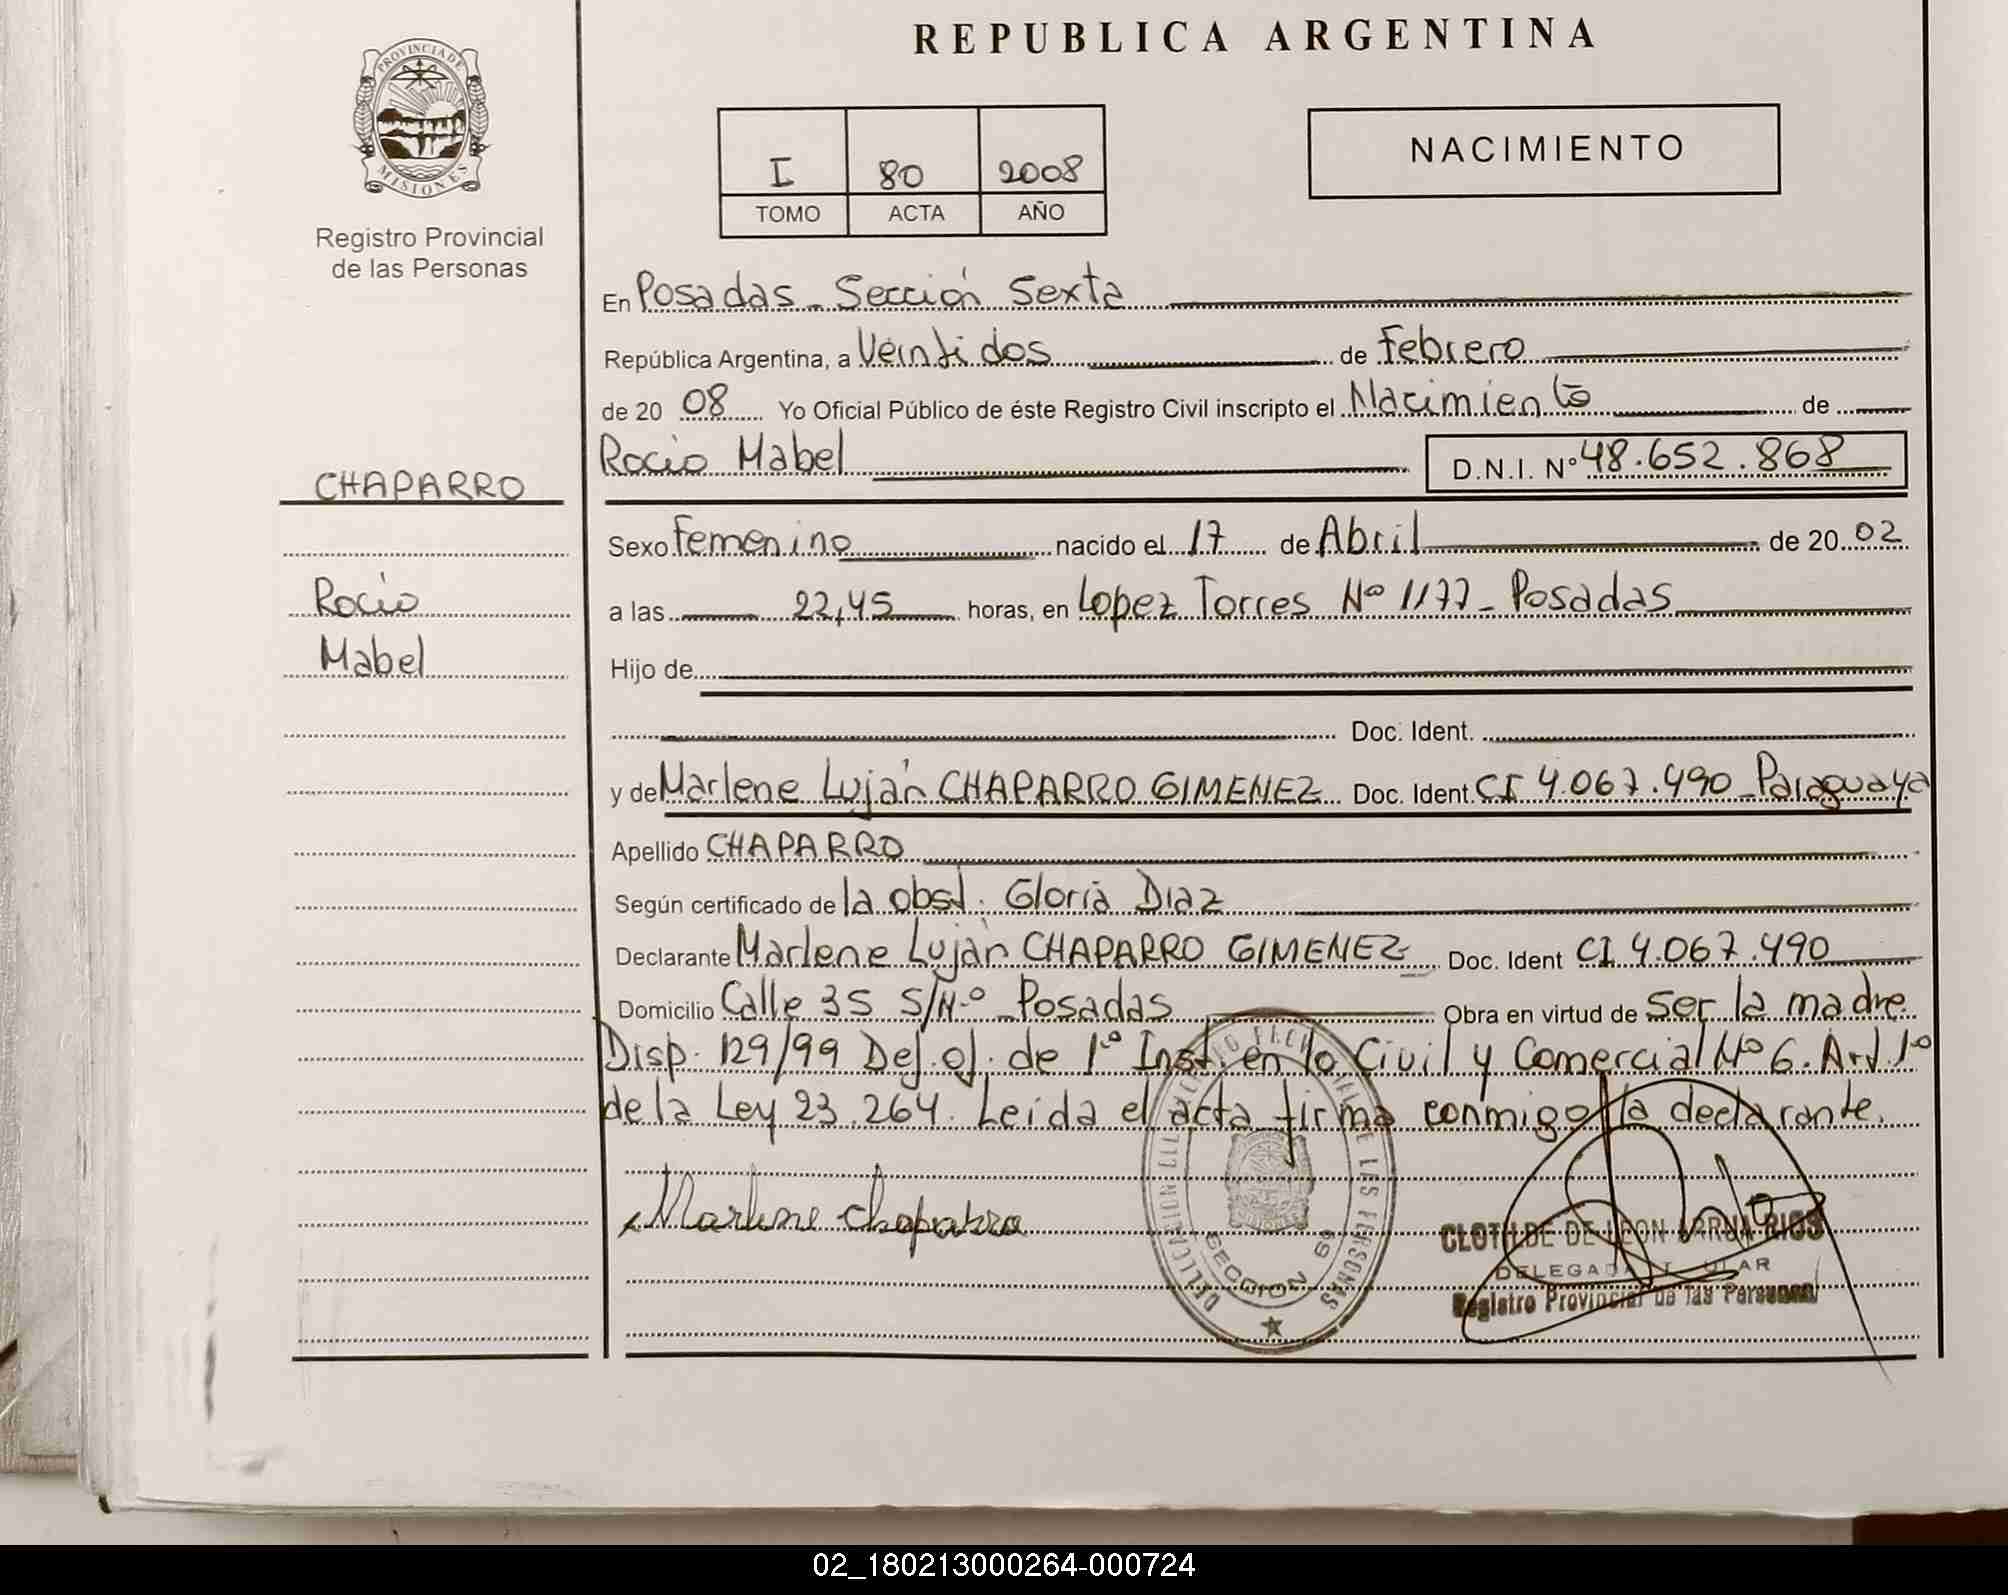 REPUBLICA ARGENTINA
PROVINCIA DE
MISIONES
Registro Provincial
de las Personas
I 80 2008
TOMO ACTA AÑO
NACIMIENTO
En Posadas - Sección Sexta
República Argentina, a Veintidos de Febrero
de 20 08 Yo Oficial Público de éste Registro Civil inscripto el Nacimiento de
Rocio Mabel D.N.I. Nº 48.652.868
CHAPARRO
Sexo Femenino nacido el 17 de Abril de 20 02
Rocio
a las 22,45 horas, en Lopez Torres Nº 1177 - Posadas
Mabel
Hijo de
Doc. Ident.
y de Marlene Luján CHAPARRO GIMENEZ Doc. Ident. CI 4.067.490 - Paraguaya
Apellido CHAPARRO
Según certificado de la obst. Gloria Diaz
Declarante Marlene Luján CHAPARRO GIMENEZ Doc. Ident CI 4.067.490
Domicilio Calle 35 S/Nº - Posadas Obra en virtud de ser la madre.
Disp. 129/99 Def. of. de 1º Inst. en lo Civil y Comercial Nº 6. Art. 1º
de la Ley 23.264. Leída el acta firma conmigo la declarante.
Marlene Chaparro
DE LAS PERSONAS
SECCION 6ª
CLOTILDE DE LEON ARRUA RIOS
DELEGADA TITULAR
Registro Provincial de las Personas
02_180213000264-000724